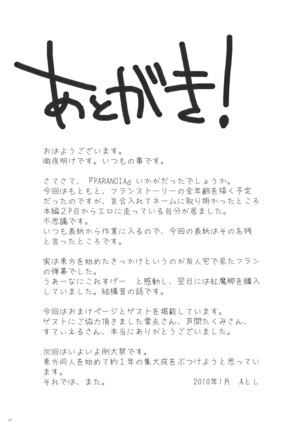 あとがき!
おはようございます。
徹夜明けです。いつもの事です。
さてさて、『PARANOIA』いかがだったでしょうか。
今回はもともと、フランストーリーの全年齢を描く予定
だったのですが、気合入れてネームに取り掛かったところ
本編2P目からエロに走っている自分が居ました。
不思議です。
いつも表紙から作業に入るので、今回の表紙はその名残
と言ったところです。
実は東方を始めたきっかけというのが友人宅で見たフラン
の弾幕でした。
うあーなにこれすげー と感動し、翌日には紅魔郷を購入
していました。結構昔の話です。
今回はおまけページとゲストを掲載しています。
ゲストにご協力頂きました零点さん、芦間たくみさん、
すてぃえるさん、本当にありがとうございました。
次回はいよいよ例大祭です。
東方同人を始めて約1年の集大成をぶつけようと思ってい
ます。
それでは、また。 2010年1月 Aとし